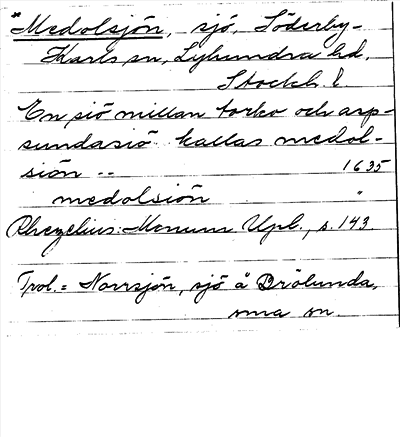 *Medolsjön, sjö, Söderby-
Karls sn, Lyhundra hd,
Stockh. l.
En siö millan torko och asp-
sundasiö kallas medol-
siön -- 1635
medolsiön "
Rhezelius: Monum Upl., s. 143
Trol. = Norrsjön, sjö å Brölunda,
sma sn.